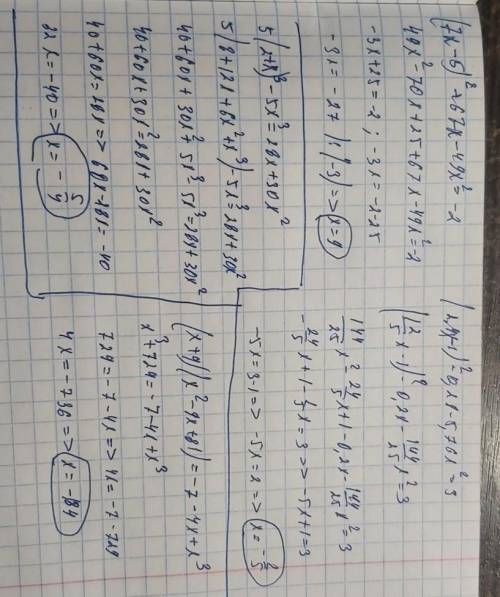 (7x-5)² + 67x - 49x² = -2
49x² - 70x + 25 + 67x - 49x² = -2
-3x + 25 = -2 ; -3x = -2-25
-3x = -27 |:(-3) => x = 9
5(x+2)³ - 5x³ = 28x + 30x²
5(8+12x+6x²+x³) - 5x³ = 28x + 30x²
40+60x+30x²+5x³-5x³ = 28x+30x²
40+60x+30x² = 28x+30x²
40+60x = 28x => 60x-28x = -40
32x = -40 => x = -5/4
(2,4x-1)² - 0,2x - 5,76x² = 3
(12/5x - 1)² - 0,2x - 144/25x² = 3
144/25x² - 24/5x + 1 - 0,2x - 144/25x² = 3
-24/5x + 1 - 1/5x = 3 => -5x+1 = 3
-5x = 3-1 => -5x = 2 => x = -2/5
(x+9)(x²-9x+81) = -7-4x+x³
x³+729 = -7-4x+x³
729 = -7-4x => 4x = -7-729
4x = -736 => x = -184